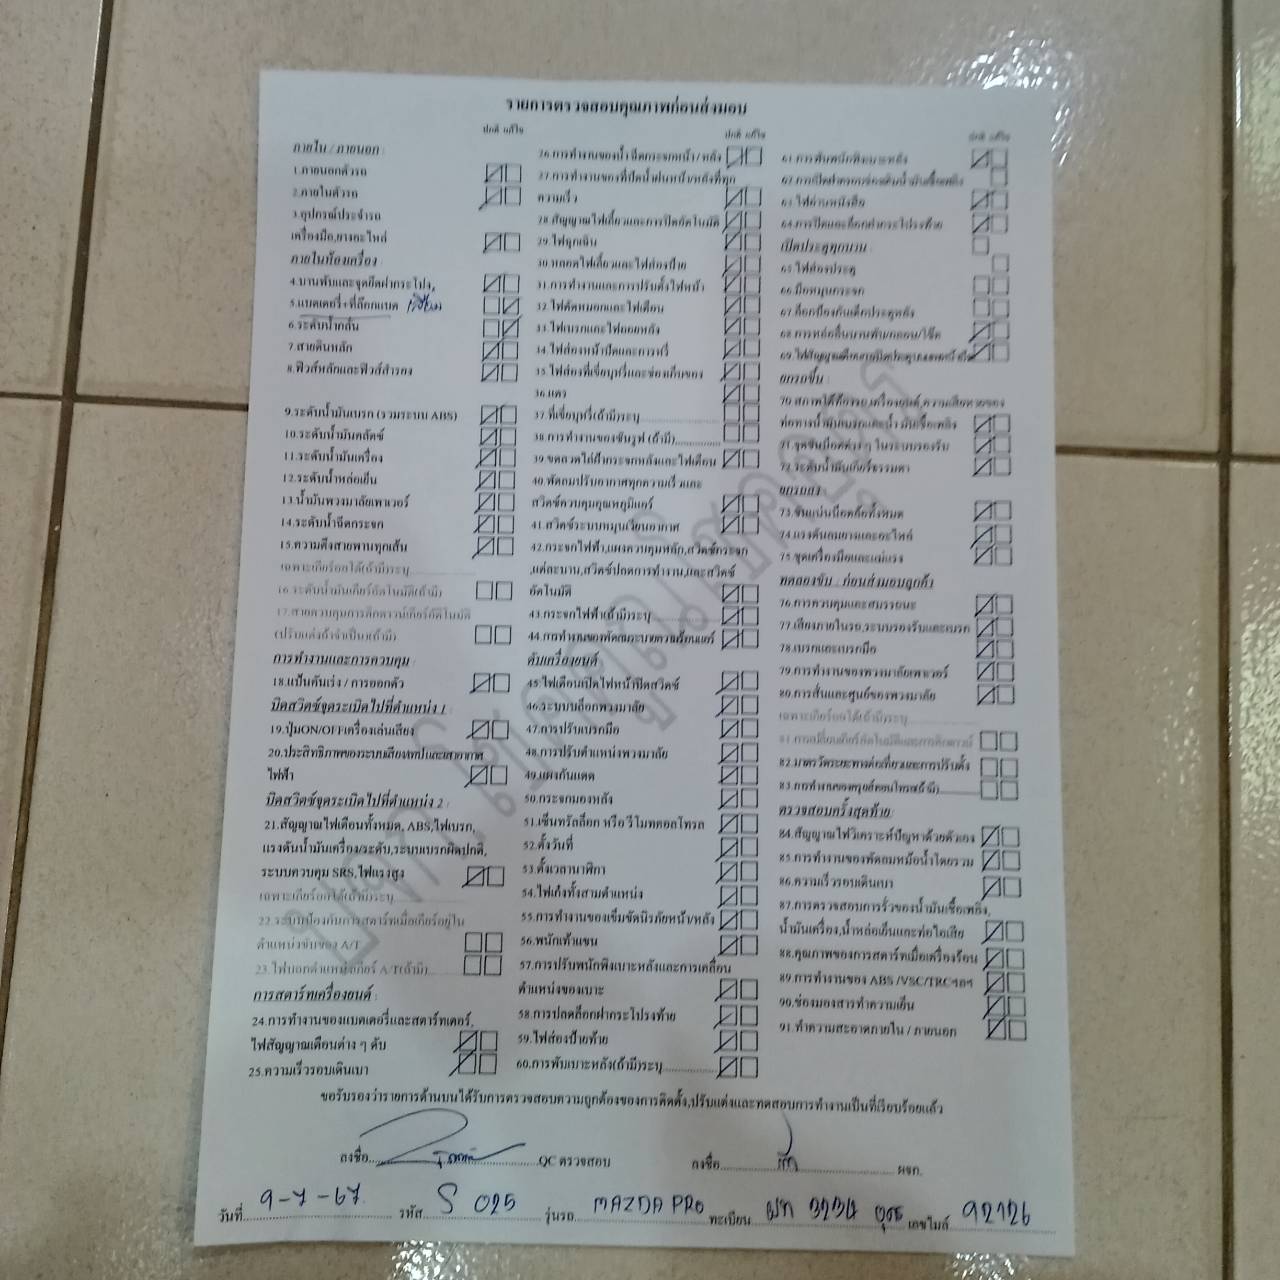 รายการตรวจสอบคุณภาพก่อนส่งมอบ
ปกติ แก้ไข
ภายใน / ภายนอก :
1.ภายนอกตัวรถ
2.ภายในตัวรถ
3.อุปกรณ์ประจำรถ
เครื่องมือ,ยางอะไหล่
ภายในห้องเครื่อง :
4.บานพับและจุดยึดฝากระโปรง,
5.แบตเตอรี่+ที่ล๊อกแบต เปลี่ยน
6.ระดับน้ำกลั่น
7.สายดินหลัก
8.ฟิวส์หลักและฟิวส์สำรอง
9.ระดับน้ำมันเบรก (รวมระบบ ABS)
10.ระดับน้ำมันคลัตช์
11.ระดับน้ำมันเครื่อง
12.ระดับน้ำหล่อเย็น
13.น้ำมันพวงมาลัยเพาเวอร์
14.ระดับน้ำฉีดกระจก
15.ความตึงสายพานทุกเส้น
เฉพาะเกียร์ออโต้(ถ้ามี)ระบุ
16.ระดับน้ำมันเกียร์อัตโนมัติ(ถ้ามี)
17.สายควบคุมการคิกดาวน์เกียร์อัตโนมัติ
(ปรับแต่งถ้าจำเป็น)(ถ้ามี)
การทำงานและการควบคุม :
18.แป้นคันเร่ง / การออกตัว
บิดสวิตซ์จุดระเบิดไปที่ตำแหน่ง 1 :
19.ปุ่มON/OFFเครื่องเล่นเสียง
20.ประสิทธิภาพของระบบเสียงเทปและเสาอากาศ
ไฟฟ้า
บิดสวิตซ์จุดระเบิดไปที่ตำแหน่ง 2 :
21.สัญญาณไฟเตือนทั้งหมด, ABS,ไฟเบรก,
แรงดันน้ำมันเครื่อง/ระดับ,ระบบเบรกผิดปกติ,
ระบบควบคุม SRS,ไฟแรงสูง
เฉพาะเกียร์ออโต้(ถ้ามี)ระบุ
22.ระบบป้องกันการสตาร์ทเมื่อเกียร์อยู่ใน
ตำแหน่งขับของ A/T
23.ไฟบอกตำแหน่งเกียร์ A/T(ถ้ามี)
การสตาร์ทเครื่องยนต์ :
24.การทำงานของแบตเตอรี่และสตาร์ทเตอร์,
ไฟสัญญาณเตือนต่าง ๆ ดับ
25.ความเร็วรอบเดินเบา
ปกติ แก้ไข
26.การทำงานของน้ำฉีดกระจกหน้า/หลัง
27.การทำงานของที่ปัดน้ำฝนหน้า/หลังที่ทุก
ความเร็ว
28.สัญญาณไฟเลี้ยวและการปิดอัตโนมัติ
29.ไฟฉุกเฉิน
30.หลอดไฟเลี้ยวและไฟส่องป้าย
31.การทำงานและการปรับตั้งไฟหน้า
32.ไฟตัดหมอกและไฟเตือน
33.ไฟเบรกและไฟถอยหลัง
34.ไฟส่องหน้าปัดและการหรี่
35.ไฟส่องที่เขี่ยบุหรี่และช่องเก็บของ
36.แตร
37.ที่เขี่ยบุหรี่(ถ้ามี)ระบุ
38.การทำงานของซันรูฟ (ถ้ามี)
39.ขดลวดไล่ฝ้ากระจกหลังและไฟเตือน
40.พัดลมปรับอากาศทุกความเร็วและ
สวิตซ์ควบคุมอุณหภูมิแอร์
41.สวิตซ์ระบบหมุนเวียนอากาศ
42.กระจกไฟฟ้า,แผงควบคุมหลัก,สวิตซ์กระจก
,แต่ละบาน,สวิตซ์ปลดการทำงาน,และสวิตซ์
อัตโนมัติ
43.กระจกไฟฟ้า(ถ้ามี)ระบุ
44.การทำงานของพัดลมระบายความร้อนแอร์
ดับเครื่องยนต์
45.ไฟเตือนเปิดไฟหน้าปิดสวิตซ์
46.ระบบล็อกพวงมาลัย
47.การปรับเบรกมือ
48.การปรับตำแหน่งพวงมาลัย
49.แผงกันแดด
50.กระจกมองหลัง
51.เซ็นทรัลล็อก หรือ รีโมทคอลโทรล
52.ตั้งวันที่
53.ตั้งเวลานาฬิกา
54.ไฟเก๋งทั้งสามตำแหน่ง
55.การทำงานของเข็มขัดนิรภัยหน้า/หลัง
56.พนักเท้าแขน
57.การปรับพนักพิงเบาะหลังและการเคลื่อน
ตำแหน่งของเบาะ
58.การปลดล็อกฝากระโปรงท้าย
59.ไฟส่องป้ายท้าย
60.การพับเบาะหลัง(ถ้ามี)ระบุ
ปกติ แก้ไข
61.การพับพนักพิงเบาะหลัง
62.การเปิดฝาครอบช่องเติมน้ำมันเชื้อเพลิง
63.ไฟอ่านหนังสือ
64.การปิดและล็อกฝากระโปรงท้าย
เปิดประตูทุกบาน :
65.ไฟส่องประตู
66.มือหมุนกระจก
67.ล็อกป้องกันเด็กประตูหลัง
68.การหล่อลื่นบานพับ/กลอน/โช๊ค
ยกรถขึ้น :
ท่อทางน้ำมันเบรกและน้ำมันเชื้อเพลิง
71.จุดขันน็อตต่าง ๆ ในระบบรองรับ
72.ระดับน้ำมันเกียร์ธรรมดา
ยกรถลง :
73.ขันแน่นน็อตล้อทั้งหมด
74.แรงดันลมยางและอะไหล่
75.ชุดเครื่องมือและแม่แรง
ทดลองขับ : ก่อนส่งมอบลูกค้า
76.การควบคุมและสมรรถนะ
77.เสียงภายในรถ,ระบบรองรับและเบรก
78.เบรกและเบรกมือ
79.การทำงานของพวงมาลัยเพาเวอร์
80.การสั่นและศูนย์ของพวงมาลัย
เฉพาะเกียร์ออโต้(ถ้ามี)ระบุ
81.การเปลี่ยนเกียร์อัตโนมัติและการคิกดาวน์
82.มาตรวัดระยะทางต่อเที่ยวและการปรับตั้ง
83.การทำงานของครุยส์คอนโทรล(ถ้ามี)
ตรวจสอบครั้งสุดท้าย:
84.สัญญาณไฟวิเคราะห์ปัญหาด้วยตัวเอง
85.การทำงานของพัดลมหม้อน้ำโดยรวม
86.ความเร็วรอบเดินเบา
87.การตรวจสอบการรั่วของน้ำมันเชื้อเพลิง,
น้ำมันเครื่อง,น้ำหล่อเย็นและท่อไอเสีย
88.คุณภาพของการสตาร์ทเมื่อเครื่องร้อน
89.การทำงานของ ABS /VSC/TRCฯลฯ
90.ช่องมองสารทำความเย็น
91.ทำความสะอาดภายใน / ภายนอก
ขอรับรองว่ารายการด้านบนได้รับการตรวจสอบความถูกต้องของการติดตั้ง,ปรับแต่งและทดสอบการทำงานเป็นที่เรียบร้อยแล้ว
ลงชื่อ QC ตรวจสอบ
ลงชื่อ ผจก.
วันที่ 9-7-67 รหัส S 025 รุ่นรถ MAZDA PRO ทะเบียน ผท 3234 อุดร เลขไมล์ 92126